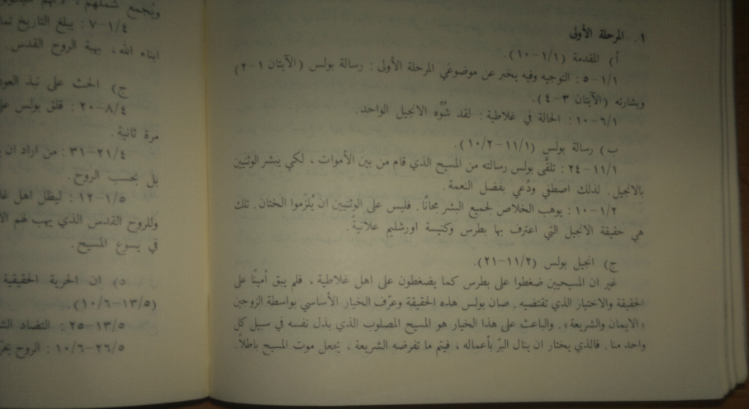 ١. المرحلة الأولى
أ) المقدمة (١/١-١٠).
١/١-٥: التوجيه وفيه يخبر عن موضوعي المرحلة الأولى: رسالة بولس (الآيتان ١-٢)
وبشارته (الآيتان ٣-٤).
٦/١-١٠: الحالة في غلاطية: لقد شُوّه الانجيل الواحد.
ب) رسالة بولس (١١/١-١٠/٢).
١١/١-٢٤: تلقّى بولس رسالته من المسيح الذي قام من بين الأموات، لكي يبشر الوثنيين
بالانجيل. لذلك اصطفي ودُعي بفضل النعمة.
١/٢-١٠: يوهب الخلاص لجميع البشر مجانًا. فليس على الوثنيين ان يُلزَموا الختان. تلك
هي حقيقة الانجيل التي اعترف بها بطرس وكنيسة اورشليم علانية.
ج) انجيل بولس (١١/٢-٢١).
غير ان المسيحيين ضغطوا على بطرس كما يضغطون على اهل غلاطية، فلم يبق أمينًا على
الحقيقة والاختيار الذي تقتضيه. صان بولس هذه الحقيقة وعرّف الخيار الأساسي بواسطة الزوجين
«الايمان والشريعة». والباعث على هذا الخيار هو المسيح المصلوب الذي بذل نفسه في سبيل كل
واحد منا. فالذي يختار ان ينال البرّ بأعماله، فيتم ما تفرضه الشريعة، يجعل موت المسيح باطلاً.
ويجمع شملهم، لانهم
٤/١-٧: يبلغ التاريخ
ابناء الله، بهبة الروح القدس.
ج) الحث على نبذ
٨/٤-٢٠: قلق بولس
مرة ثانية.
٢١/٤-٣١: من اراد ان
بل بحسب الروح.
١/٥-١٢: ليظل اهل
وللروح القدس الذي يهب لهم
في يسوع المسيح.
د) ان الحرية الحقيقية
(١٣/٥-١٠/٦).
١٣/٥-٢٥: التضاد
٢٦/٥-١٠/٦: الروح